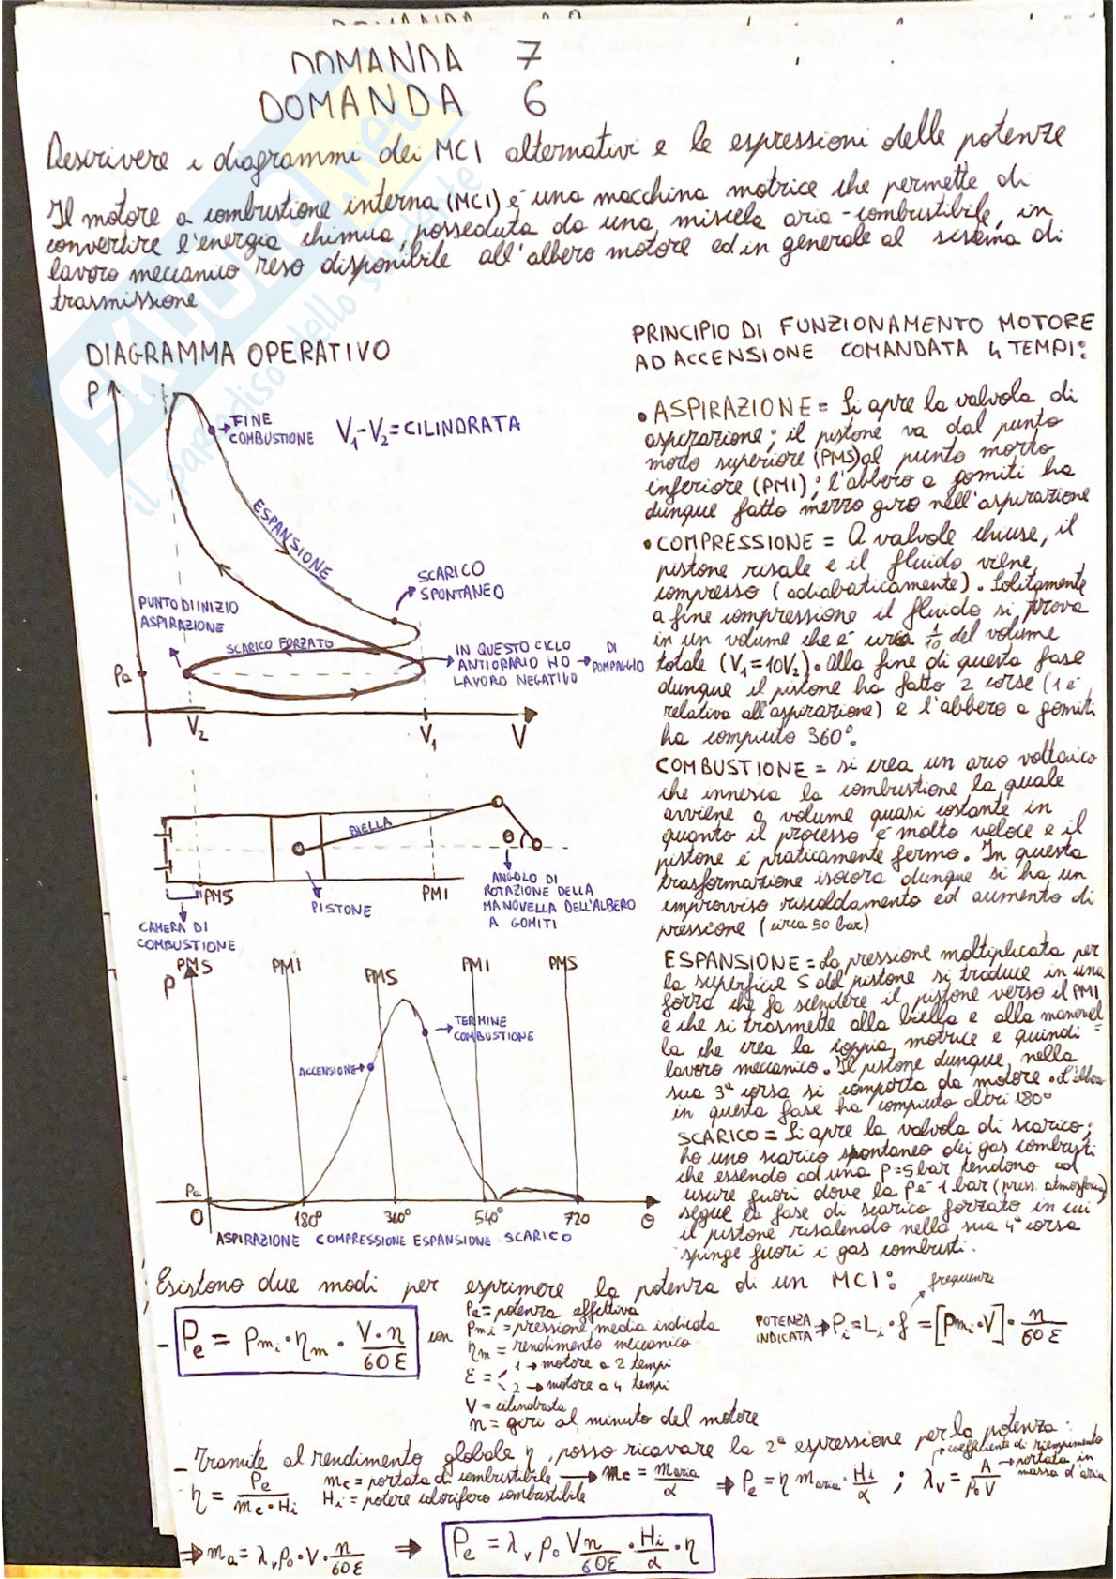 DOMANDA 7
DOMANDA 6
Descrivere i diagrammi dei MCI alternativi e le espressioni delle potenze
Il motore a combustione interna (MCI) è una macchina motrice che permette di
convertire l'energia chimica, posseduta da una miscela aria-combustibile, in
lavoro meccanico reso disponibile all'albero motore ed in generale al sistema di
trasmissione
DIAGRAMMA OPERATIVO
P
FINE
COMBUSTIONE
V₁-V₂=CILINDRATA
ESPANSIONE
SCARICO
SPONTANEO
PUNTO DI INIZIO
ASPIRAZIONE
SCARICO FORZATO
IN QUESTO CICLO
ANTIORARIO HO
LAVORO NEGATIVO
DI
POMPAGGIO
Pa
V₂
V₁
V
BIELLA
θ
PMS
PISTONE
PMI
ANGOLO DI
ROTAZIONE DELLA
MANOVELLA DELL'ALBERO
A GOMITI
CAMERA DI
COMBUSTIONE
PMS PMI PMS PMI PMS
P
TERMINE
COMBUSTIONE
ACCENSIONE
Pa
0 180° 340° 540° 720 θ
ASPIRAZIONE COMPRESSIONE ESPANSIONE SCARICO
PRINCIPIO DI FUNZIONAMENTO MOTORE
AD ACCENSIONE COMANDATA 4 TEMPI:
• ASPIRAZIONE = Si apre la valvola di
aspirazione; il pistone va dal punto
modo superiore (PMS) al punto morto
inferiore (PMI); l'abbero a gomiti ha
dunque fatto mezzo giro nell'aspirazione
• COMPRESSIONE = A valvole chiuse, il
pistone risale e il fluido viene
compresso (adiabaticamente). Solitamente
a fine compressione il fluido si trova
in un volume che è circa 1/10 del volume
totale (V₁=10V₂). Alla fine di questa fase
dunque il pistone ha fatto 2 corse (1 è
relativa all'aspirazione) e l'abbero a gomiti
ha compiuto 360°.
COMBUSTIONE = si crea un arco voltaico
che innesca la combustione la quale
avviene a volume quasi costante in
quanto il processo è molto veloce e il
pistone è praticamente fermo. In questa
trasformazione isocora dunque si ha un
improvviso riscaldamento ed aumento di
pressione (circa 50 bar)
ESPANSIONE = La pressione moltiplicata per
la superficie S del pistone si traduce in una
forza che fa scendere il pistone verso il PMI
e che si trasmette alla biella e alla manovel=
la che crea la coppia motrice e quindi
lavoro meccanico. Il pistone dunque, nella
sua 3ª corsa si comporta da motore. L'albero
in questa fase ha compiuto altri 180°
SCARICO = Si apre la valvola di scarico;
ho uno scarico spontaneo dei gas combusti
che essendo ad una P=5bar tendono ad
uscire fuori dove la P è 1 bar (press. atmosferica)
segue la fase di scarico forzato in cui
il pistone risalendo nella sua 4ª corsa
spinge fuori i gas combusti.
Esistono due modi per esprimere la potenza di un MCI:
- Pe = pmi · ηm · V·n / 60ε con
Pe = potenza effettiva
Pmi = pressione media indicata
ηm = rendimento meccanico
ε = 1 → motore a 2 tempi
2 → motore a 4 tempi
V = cilindrata
n = giri al minuto del motore
frequenza
POTENZA
INDICATA → Pi = Li · f = [Pmi · V] · n / 60ε
- Tramite al rendimento globale η, posso ricavare la 2ª espressione per la potenza:
η = Pe / mc · Hi
mc = portata di combustibile → mc = maria / α ⇒ Pe = η maria · Hi / α ; λv = A / ρ₀V
Hi = potere calorifero combustibile
coefficiente di riempimento
portata in
massa d'aria
⇒ ma = λv ρ₀ · V · n / 60ε ⇒ Pe = λv ρ₀ V n / 60ε · Hi / α · η